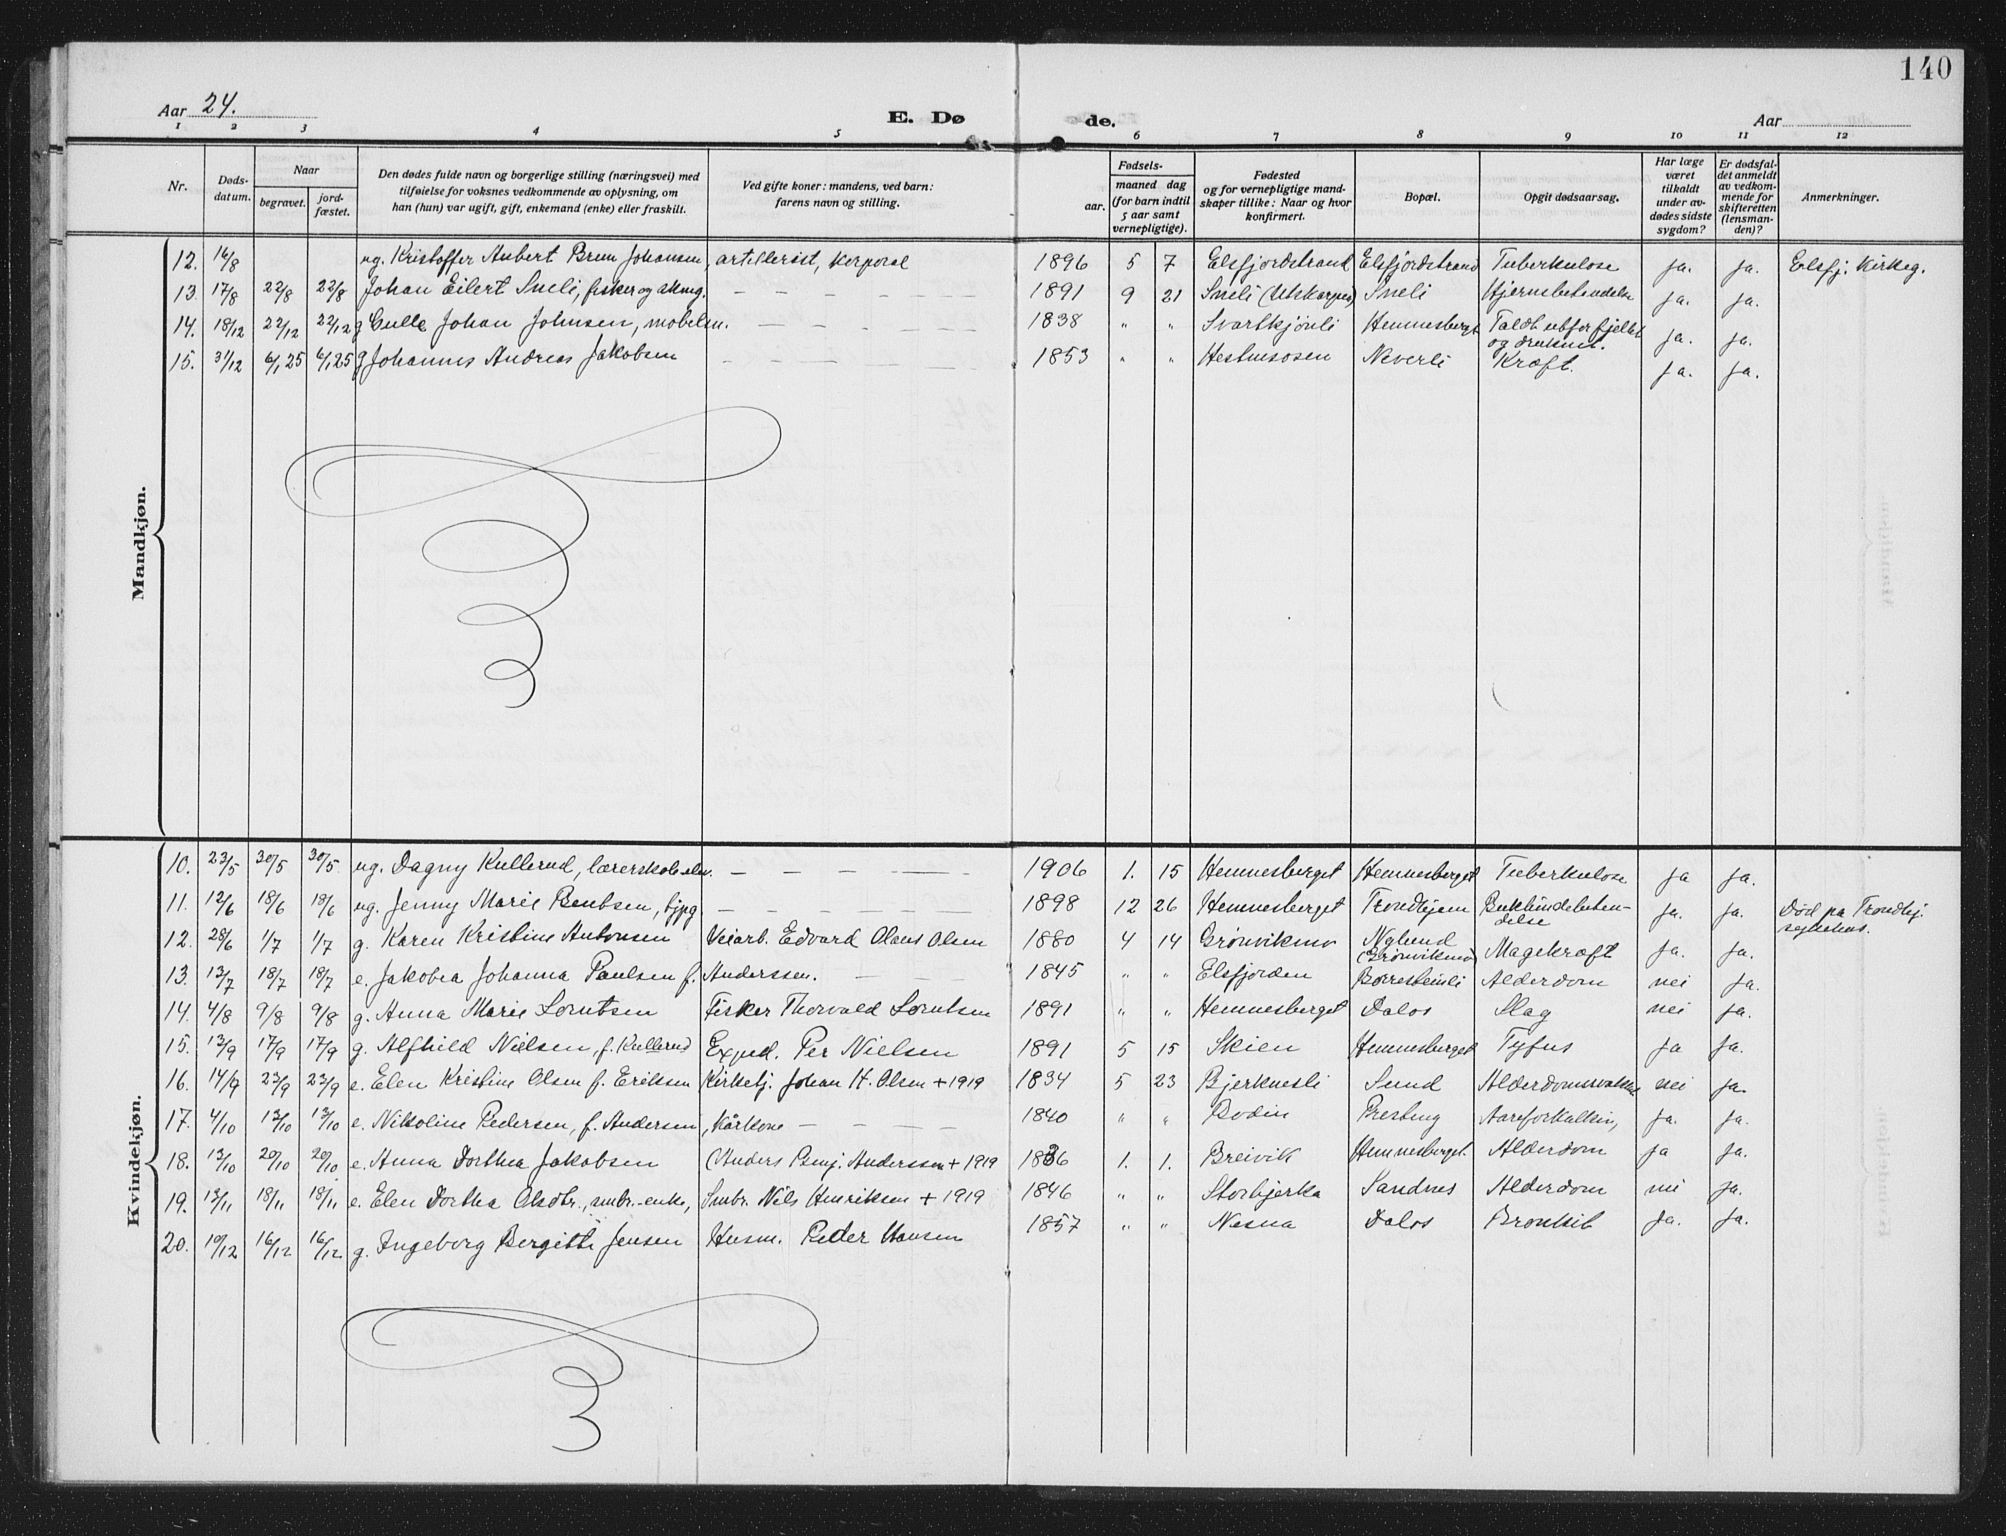 140
Aar 24.
E. Dø
de.
Aar
1 2 3 4 5 6 7 8 9 10 11 12
Nr.
Døds-
datum.
Naar
begravet.
jord-
fæstet.
Den dødes fulde navn og borgerlige stilling (næringsvei) med
tilføielse for voksnes vedkommende av oplysning, om
han (hun) var ugift, gift, enkemand (enke) eller fraskilt.
Ved gifte koner: mandens, ved barn:
farens navn og stilling.
Fødsels-
aar.
maaned dag
(for barn indtil
5 aar samt
vernepligtige).
Fødested
og for vernepligtige mand-
skaper tillike: Naar og hvor
konfirmert.
Bopæl.
Opgit dødsaarsag.
Har læge
været
tilkaldt
under av-
dødes sidste
sygdom?
Er dødsfal-
det anmeldt
av vedkom-
mende for
skifteretten
(lensman-
den)?
Anmerkninger.
Mandkjøn.
12. 16/8 ug. Kristoffer Anbert Brun Johansen, artillerist, korporal 1896 5 7 Elsfjordstrand Elsfjordstrand Tuberkulose ja. ja. Elsfj. Kirkeg.
13. 17/8 22/8 22/8 Johan Eilert Sneli, fisker og 1891 9 21 Sneli (Utskarpen) Sneli Hjernebetendelse ja. ja.
14. 18/12 22/12 22/12 g Johan Johnsen, 1838 " " Svartkjønli Hemnesberget utfor fjellet
og druknet. ja. ja.
15. 31/12 6/1 25 6/1 25 g Johannes Andreas Jakobsen 1853 " " Hestmosen Neverli Kræft. ja. ja.
Kvindekjøn.
10. 23/5 30/5 30/5 ug. Dagny Kullerud, lærerskoleelev. 1906 1. 15 Hemnesberget Hemnesberget Tuberkulose ja ja.
11. 12/6 18/6 18/6 ug. Jenny Marie Bentsen, tjpg. 1898 12 26 Hemnesberget Trondhjem Bukhindebeten-
delse ja. ja. Død på Trondhj.
sykehus.
12. 28/6 1/7 1/7 g. Karen Kristine Antonsen Veiarb. Edvard Olaus Olsen 1880 4 14 Grønvikmo Nylund
(Grønvikmo) Magekræft ja. ja.
13. 13/7 18/7 18/7 e. Jakobea Johanna Paulsen f. Anderssen. 1845 " " Elsfjorden Alderdom nei ja.
14. 4/8 9/8 9/8 g. Anna Marie Lorntsen Fisker Thorvald Lorntsen 1891 " " Hemnesberget Dalos Slag nei ja.
15. 13/9 17/9 17/9 g. Alfhild Nielsen, f. Kullerud Exped. Per Nielsen 1891 5 15 Skien Hemnesberget Tyfus ja ja.
16. 14/9 23/9 23/9 e. Elen Kristine Olsen f. Eriksen Kirketj. Johan H. Olsen + 1919 1834 5 23 Bjerknesli Sund Alderdomssvakhet nei ja.
17. 4/10 13/10 13/10 e. Nikoline Pedersen, f. Andersen, Kårkone 1840 " " Bodin Presteng Aareforkalkn., ja. ja.
18. 13/10 20/10 20/10 e. Anna Dorthea Jakobsen (Anders Benj. Anderssen + 1919 1836 1. 1. Breivik Hemnesberget. Alderdom ja ja.
19. 13/11 18/11 18/11 e. Elen Dorthea Olsdtr., smbr.-enke, Smbr. Nils Henriksen + 1919 1846 " " Storbjerka Sandnes Alderdom nei ja.
20. 10/12 16/12 16/12 g. Ingeborg Bergitte Jensen Husm. Peder Hansen 1857 " " Nesna Dalos Bronkit ja. ja.